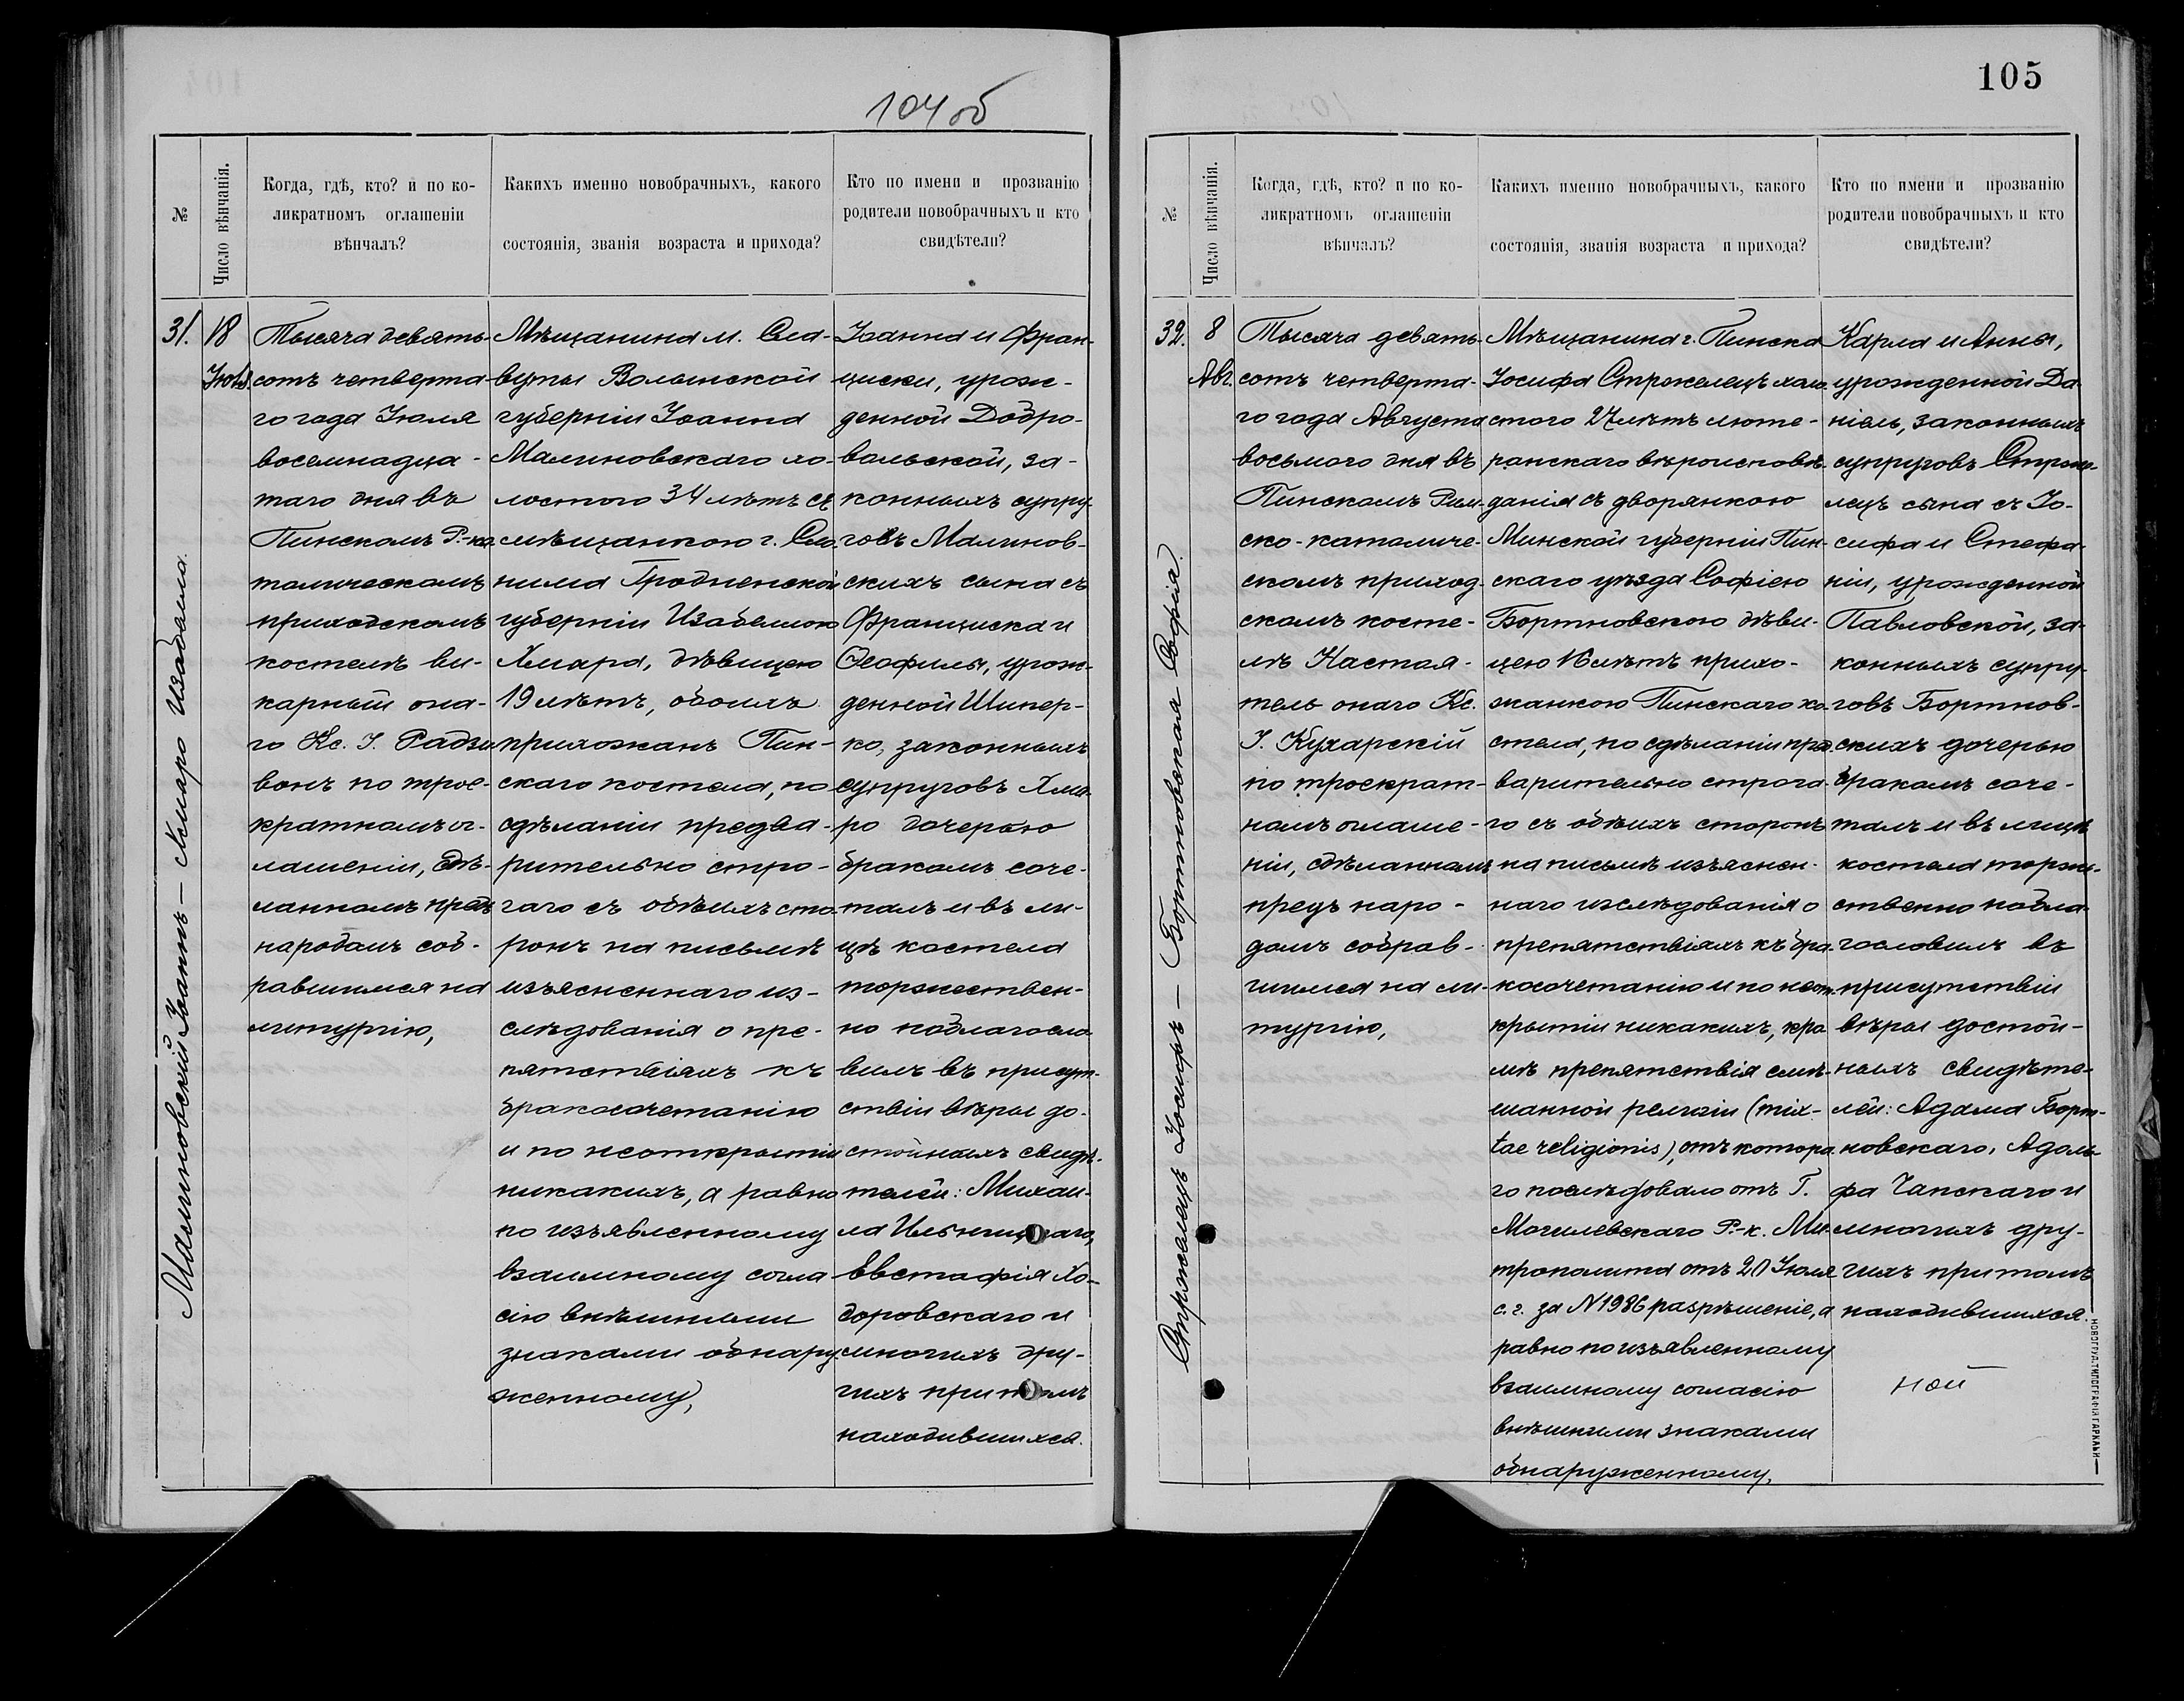 104 об
№
Число вѣнчанія.
Когда, гдѣ, кто? и по ко-
ликратномъ оглашеніи
вѣнчалъ?
Какихъ именно новобрачныхъ, какого
состоянія, званія возраста и прихода?
Кто по имени и прозванію
родители новобрачныхъ и кто
свидѣтели?
Малиновскій Іоаннъ — Хмаро Изабелла.
31.
18
Іюля.
Тысяча девять-
сотъ четверта-
го года Іюля
восемнадца-
таго дня въ
Пинскомъ Р.-ка
толическомъ
приходскомъ
костелѣ ви-
карный она-
го Кс. І. Радзи
вонъ по трое-
кратномъ ог-
лашеніи, сдѣ-
ланномъ предъ
народомъ соб-
равшимся на
литургію,
Мѣщанина м. Сла-
вуты Волынской
губерніи Іоанна
Малиновскаго хо-
лостого 34 лѣтъ съ
мѣщанкою г. Сло-
нима Гродненской
губерніи Изабеллою
Хмара, дѣвицею
19 лѣтъ, обоихъ
прихожанъ Пин-
скаго костела, по
сдѣланіи предва-
рительно стро-
гаго съ обѣихъ сто
ронъ на письмѣ
изъясненнаго из-
слѣдованія о пре-
пятствіяхъ къ
бракосочетанію
и по неоткрытіи
никакихъ, а равно
по изъявленному
взаимному согла
сію внѣшними
знаками обнару-
женному,
Іоанна и Фран-
циски, урож-
денной Добро-
вольской, за-
конныхъ супру-
говъ Малинов-
скихъ сына съ
Франциска и
Ѳеофилы, урож-
денной Шипер-
ко, законныхъ
супруговъ Хма-
ро дочерью
бракомъ соче-
талъ и въ ли-
цѣ костела
торжествен-
но поблагосло
вилъ въ присут-
ствіи вѣры до-
стойныхъ свидѣ-
телей: Михаи-
ла Ильницкаго,
Евстафія Хо-
доровскаго и
многихъ дру-
гихъ при томъ
находившихся.
105
№
Число вѣнчанія.
Когда, гдѣ, кто? и по ко-
ликратномъ оглашеніи
вѣнчалъ?
Какихъ именно новобрачныхъ, какого
состоянія, званія возраста и прихода?
Кто по имени и прозванію
родители новобрачныхъ и кто
свидѣтели?
Стржелецъ Іосифъ — Бортновская Софія.
32.
8
Авг.
Тысяча девять-
сотъ четверта-
го года Августа
восьмого дня въ
Пинскомъ Рим-
ско-католиче-
скомъ приход-
скомъ косте-
лѣ Настоя-
тель онаго Кс.
І. Кухарскій
по троекрат-
номъ оглаше-
ніи, сдѣланномъ
предъ наро-
домъ собрав-
шимся на ли-
тургію,
Мѣщанина г. Пинска
Іосифа Стржелецъ холо-
стого 27 лѣтъ люте-
ранскаго вѣроисповѣ-
данія съ дворянкою
Минской губерніи Пин-
скаго уѣзда Софіею
Бортновскою дѣви-
цею 16 лѣтъ прихо-
жанкою Пинскаго ко-
стела, по сдѣланіи пред-
варительно строга-
го съ обѣихъ сторонъ
на письмѣ изъяснен-
наго изслѣдованія о
препятствіяхъ къ бра-
косочетанію и по неот-
крытіи никакихъ, кро
мѣ препятствія смѣ-
шанной религіи (mix-
tae religionis), отъ котора-
го послѣдовало отъ Г.
Могилевскаго Р.-к. Ми-
трополита отъ 20 Іюля
с. г. за N 1986 разрѣшеніе, а
равно по изъявленному
взаимному согласію
внѣшними знаками
обнаруженному,
Карла и Анны,
урожденной Да-
ніель, законныхъ
супруговъ Стрже-
лецъ сына съ Іо-
сифа и Стефа-
ніи, урожденной
Павловской, за-
конныхъ супру-
говъ Бортнов-
скихъ дочерью
бракомъ соче-
талъ и въ лицѣ
костела торже-
ственно побла-
гословилъ въ
присутствіи
вѣры достой-
ныхъ свидѣте-
лей: Адама Борт-
новскаго, Адоль-
фа Чапскаго и
многихъ дру-
гихъ при томъ
находившихся.
НОВОГРУД. ТИПОГРАФІЯ ГАРКАВИ